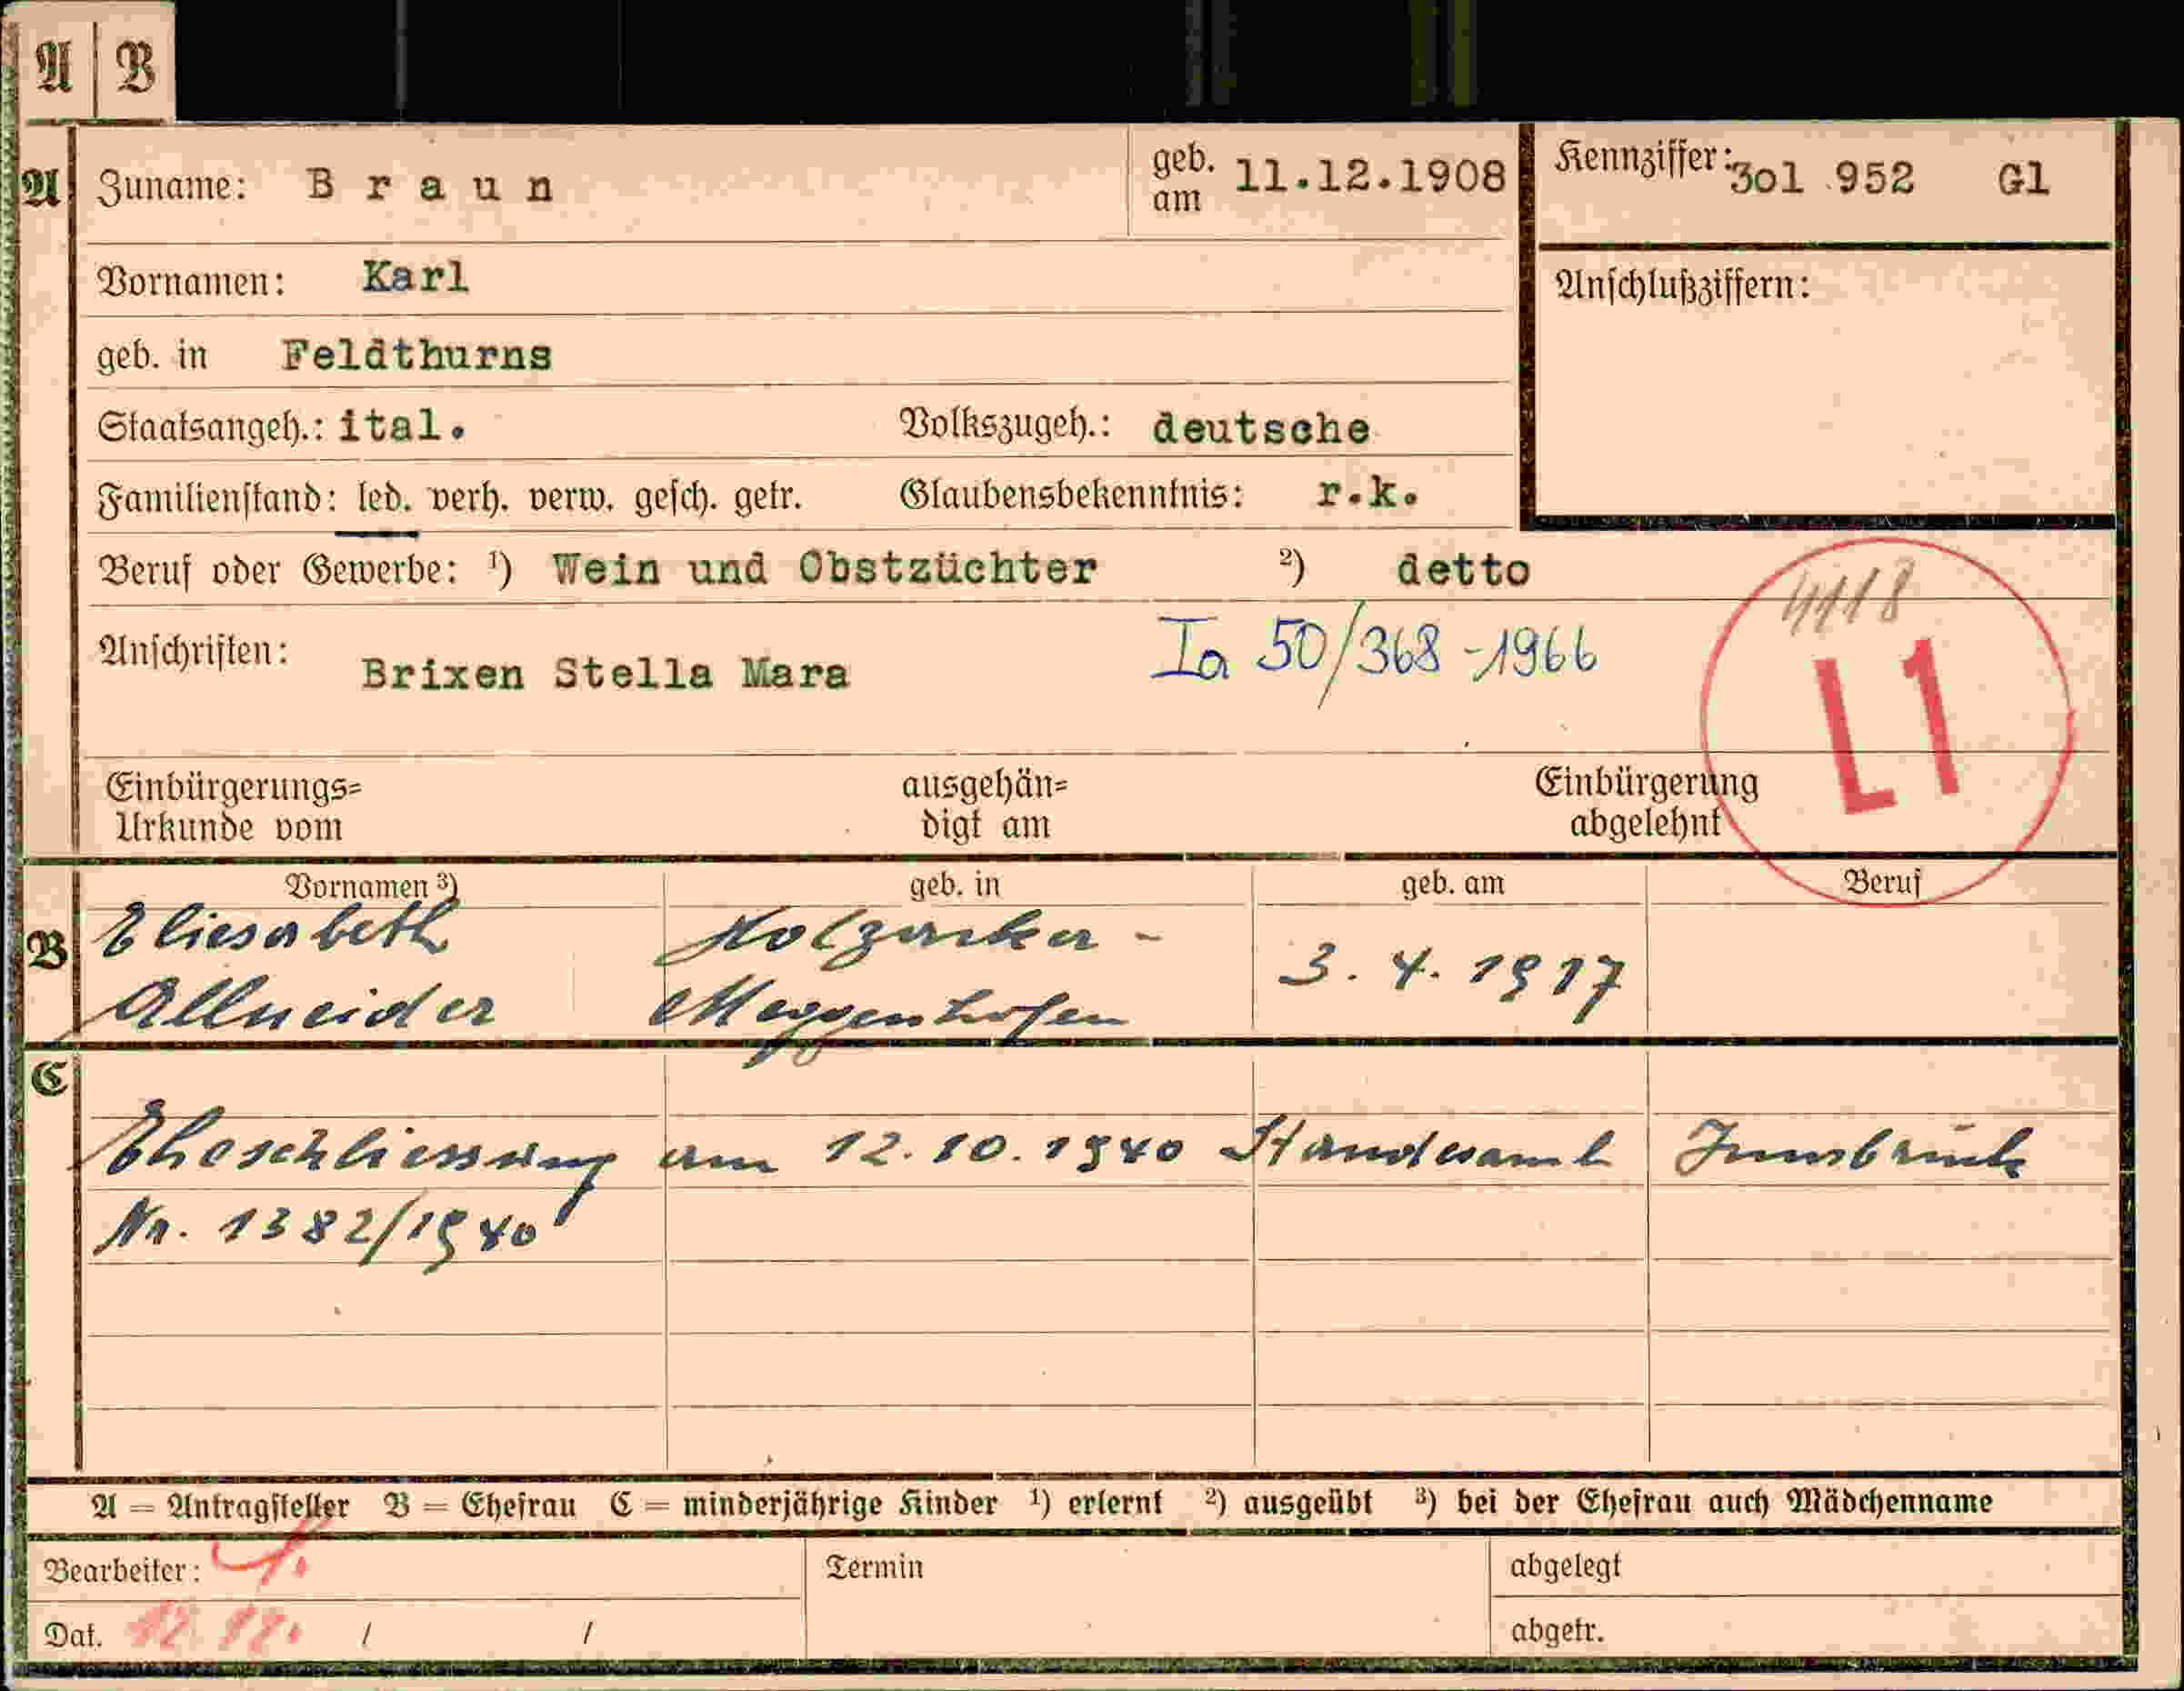 A B
A Zuname: Braun geb. am 11.12.1908 Kennziffer: 3o1 952 Gl
Vornamen: Karl Anschlußziffern:
geb. in Feldthurns
Staatsangeh.: ital. Volkszugeh.: deutsche
Familienstand: led. verh. verw. gesch. getr. Glaubensbekenntnis: r.k.
Beruf oder Gewerbe: ¹) Wein und Obstzüchter ²) detto
4118
Anschriften: Brixen Stella Mara Ia 50/368-1966
L1
Einbürgerungs= ausgehän= Einbürgerung
Urkunde vom digt am abgelehnt
Vornamen ³) geb. in geb. am Beruf
B Eliesabeth Holzacker - 3. 4. 1917
Allneider Meggenhofen
C
Eheschliessung am 12.10.1940 Standesamt Innsbruck
Nr. 1382/1940
A = Antragsteller B = Ehefrau C = minderjährige Kinder ¹) erlernt ²) ausgeübt ³) bei der Ehefrau auch Mädchenname
Bearbeiter: Termin abgelegt
Dat. 12 12. / / abgetr.